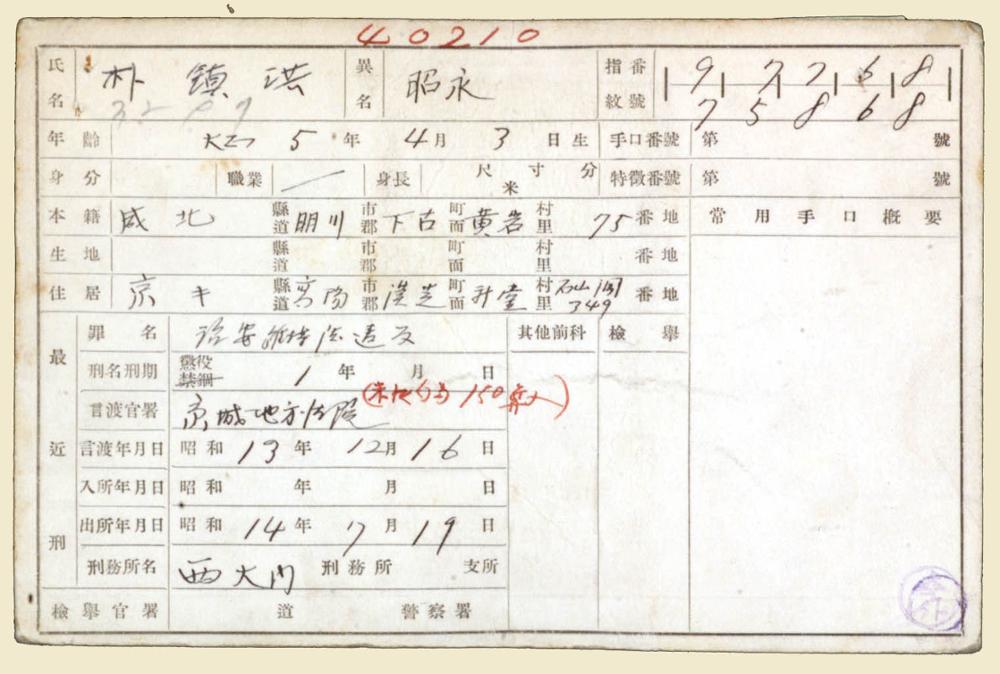 40210
氏名 朴鎮洪 異名 昭永 指紋番號 9 7 7 6 8
7 5 8 6 8
年齡 大正 5年 4月 3日生 手口番號 第 號
身分 職業 身長 尺寸分 米 特徵番號 第 號
本籍 咸北 縣道 明川 市郡 下古 町面 黄岩 村里 75 番地 常用手口概要
生地 縣道 市郡 町面 村里 番地
住居 京キ 縣道 高陽 市郡 漢芝 町面 村里 349 番地
最近刑
罪名 治安維持法違反 其他前科 檢擧
刑名刑期 懲役 禁錮 1年 月 日
言渡官署 京城地方法院 (未決勾留150算入)
言渡年月日 昭和13年 12月16日
入所年月日 昭和 年 月 日
出所年月日 昭和14年 7月19日
刑務所名 西大門 刑務所 支所
檢擧官署 道 警察署